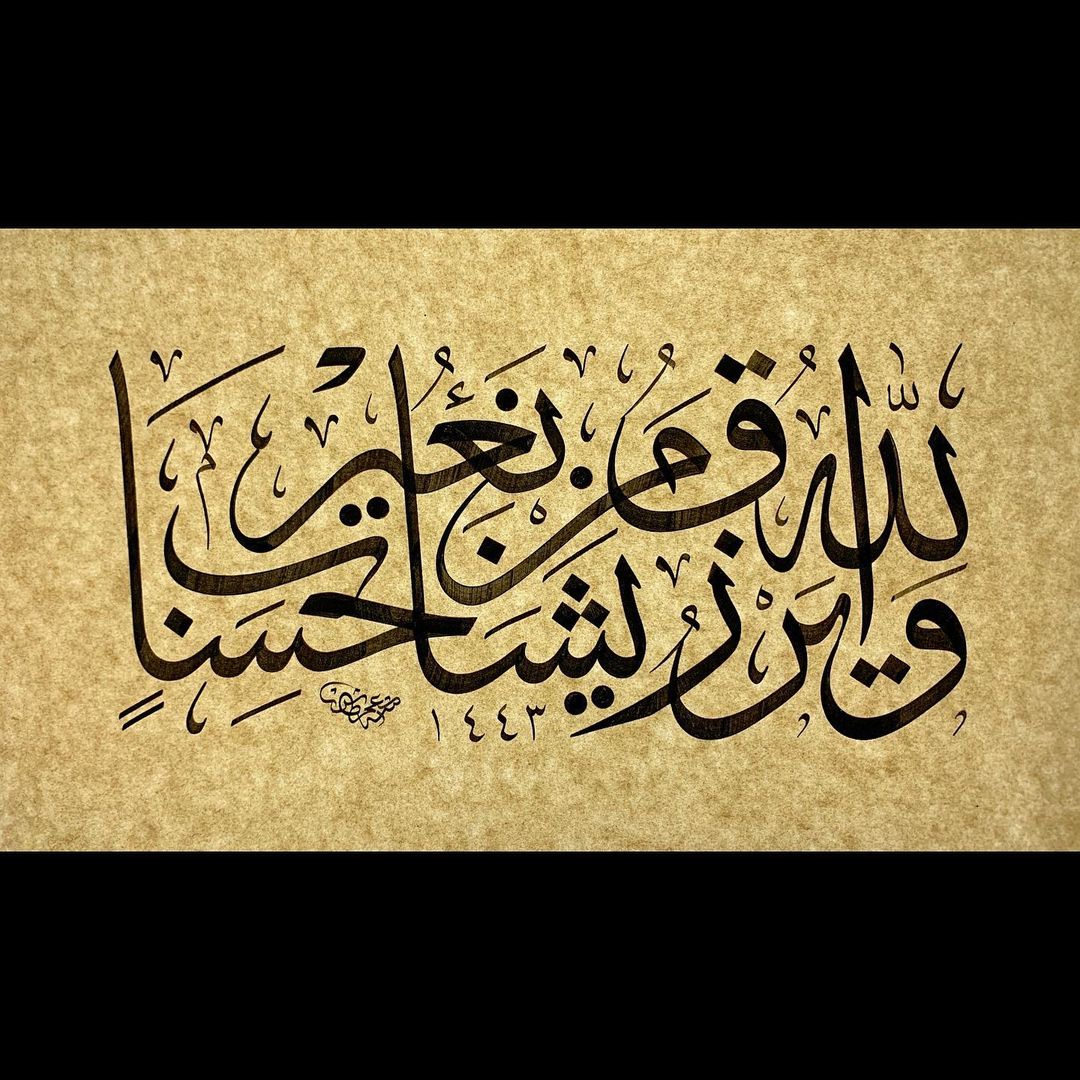 وَاللّٰهُ يَرْزُقُ مَنْ يَشَاءُ بِغَيْرِ حِسَابٍ
١٤٤٣